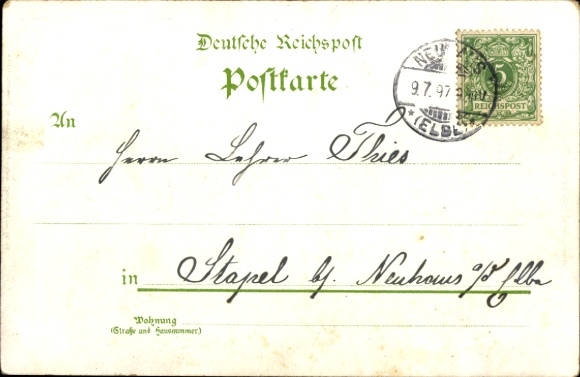 Deutsche Reichspost
Postkarte
NEUHAUS
9.7.97
* (ELBE) *
5
REICHSPOST
An
Herrn Lehrer Thies
in Stapel b/. Neuhaus a/d Elbe
Wohnung
(Straße und Hausnummer)